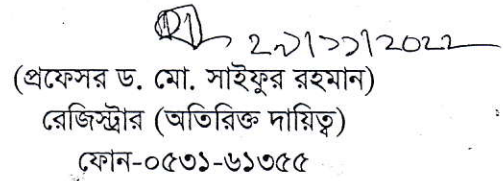 (প্রফেসর ড. মো. সাইফুর রহমান)
রেজিস্ট্রার (অতিরিক্ত দায়িত্ব)
ফোন-০৫৩১-৬১৩৫৫